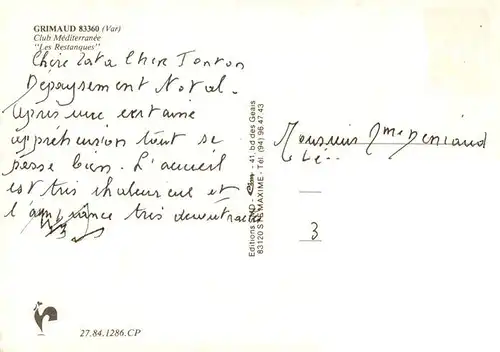 GRIMAUD 83360 (Var)
Club Méditerranée
"Les Restanques"
Chère Tata Cher Tonton
Dépaysement Total.
Après une certaine
appréhension tout se
passe bien. L'accueil
est très chaleureux et
l'ambiance très
Editions - 41, bd des Géais
83120 STE MAXIME - Tél. (94) 96.47.43
Monsieur Mme Deniaud
3
27.84.1286.CP